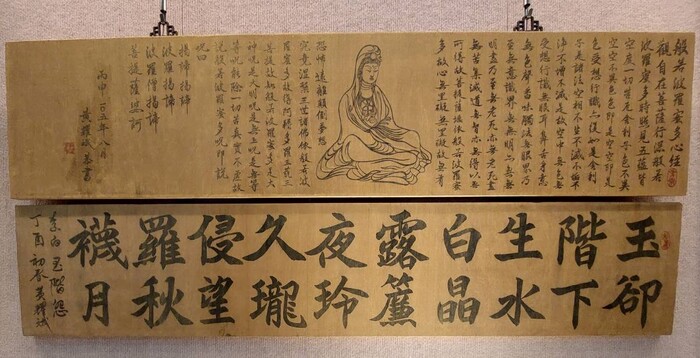 般若波羅蜜多心經
觀自在菩薩行深般若
波羅蜜多時照見五蘊皆
空度一切苦厄舍利子色不異
空空不異色色即是空空即是
色受想行識亦復如是舍利
子是諸法空相不生不滅不垢不
淨不增不減是故空中無色無
受想行識無眼耳鼻舌身意
無色聲香味觸法無眼界乃
至無意識界無無明亦無無
明盡乃至無老死亦無老死盡
無苦集滅道無智亦無得以無
所得故菩提薩埵依般若波羅蜜
多故心無罣礙無罣礙故無有
恐怖遠離顛倒夢想
究竟涅槃三世諸佛依般若波
羅蜜多故得阿耨多羅三藐三
菩提故知般若波羅蜜多是大
神咒是大明咒是無上咒是無等
等咒能除一切苦真實不虛故
說般若波羅蜜多咒即說
咒曰
揭諦揭諦
波羅揭諦
波羅僧揭諦
菩提薩婆訶
丙申一百五年八月
黃耀斌恭書
玉階生白露夜久侵羅襪
卻下水晶簾玲瓏望秋月
李白玉階怨
丁酉初春黃耀斌